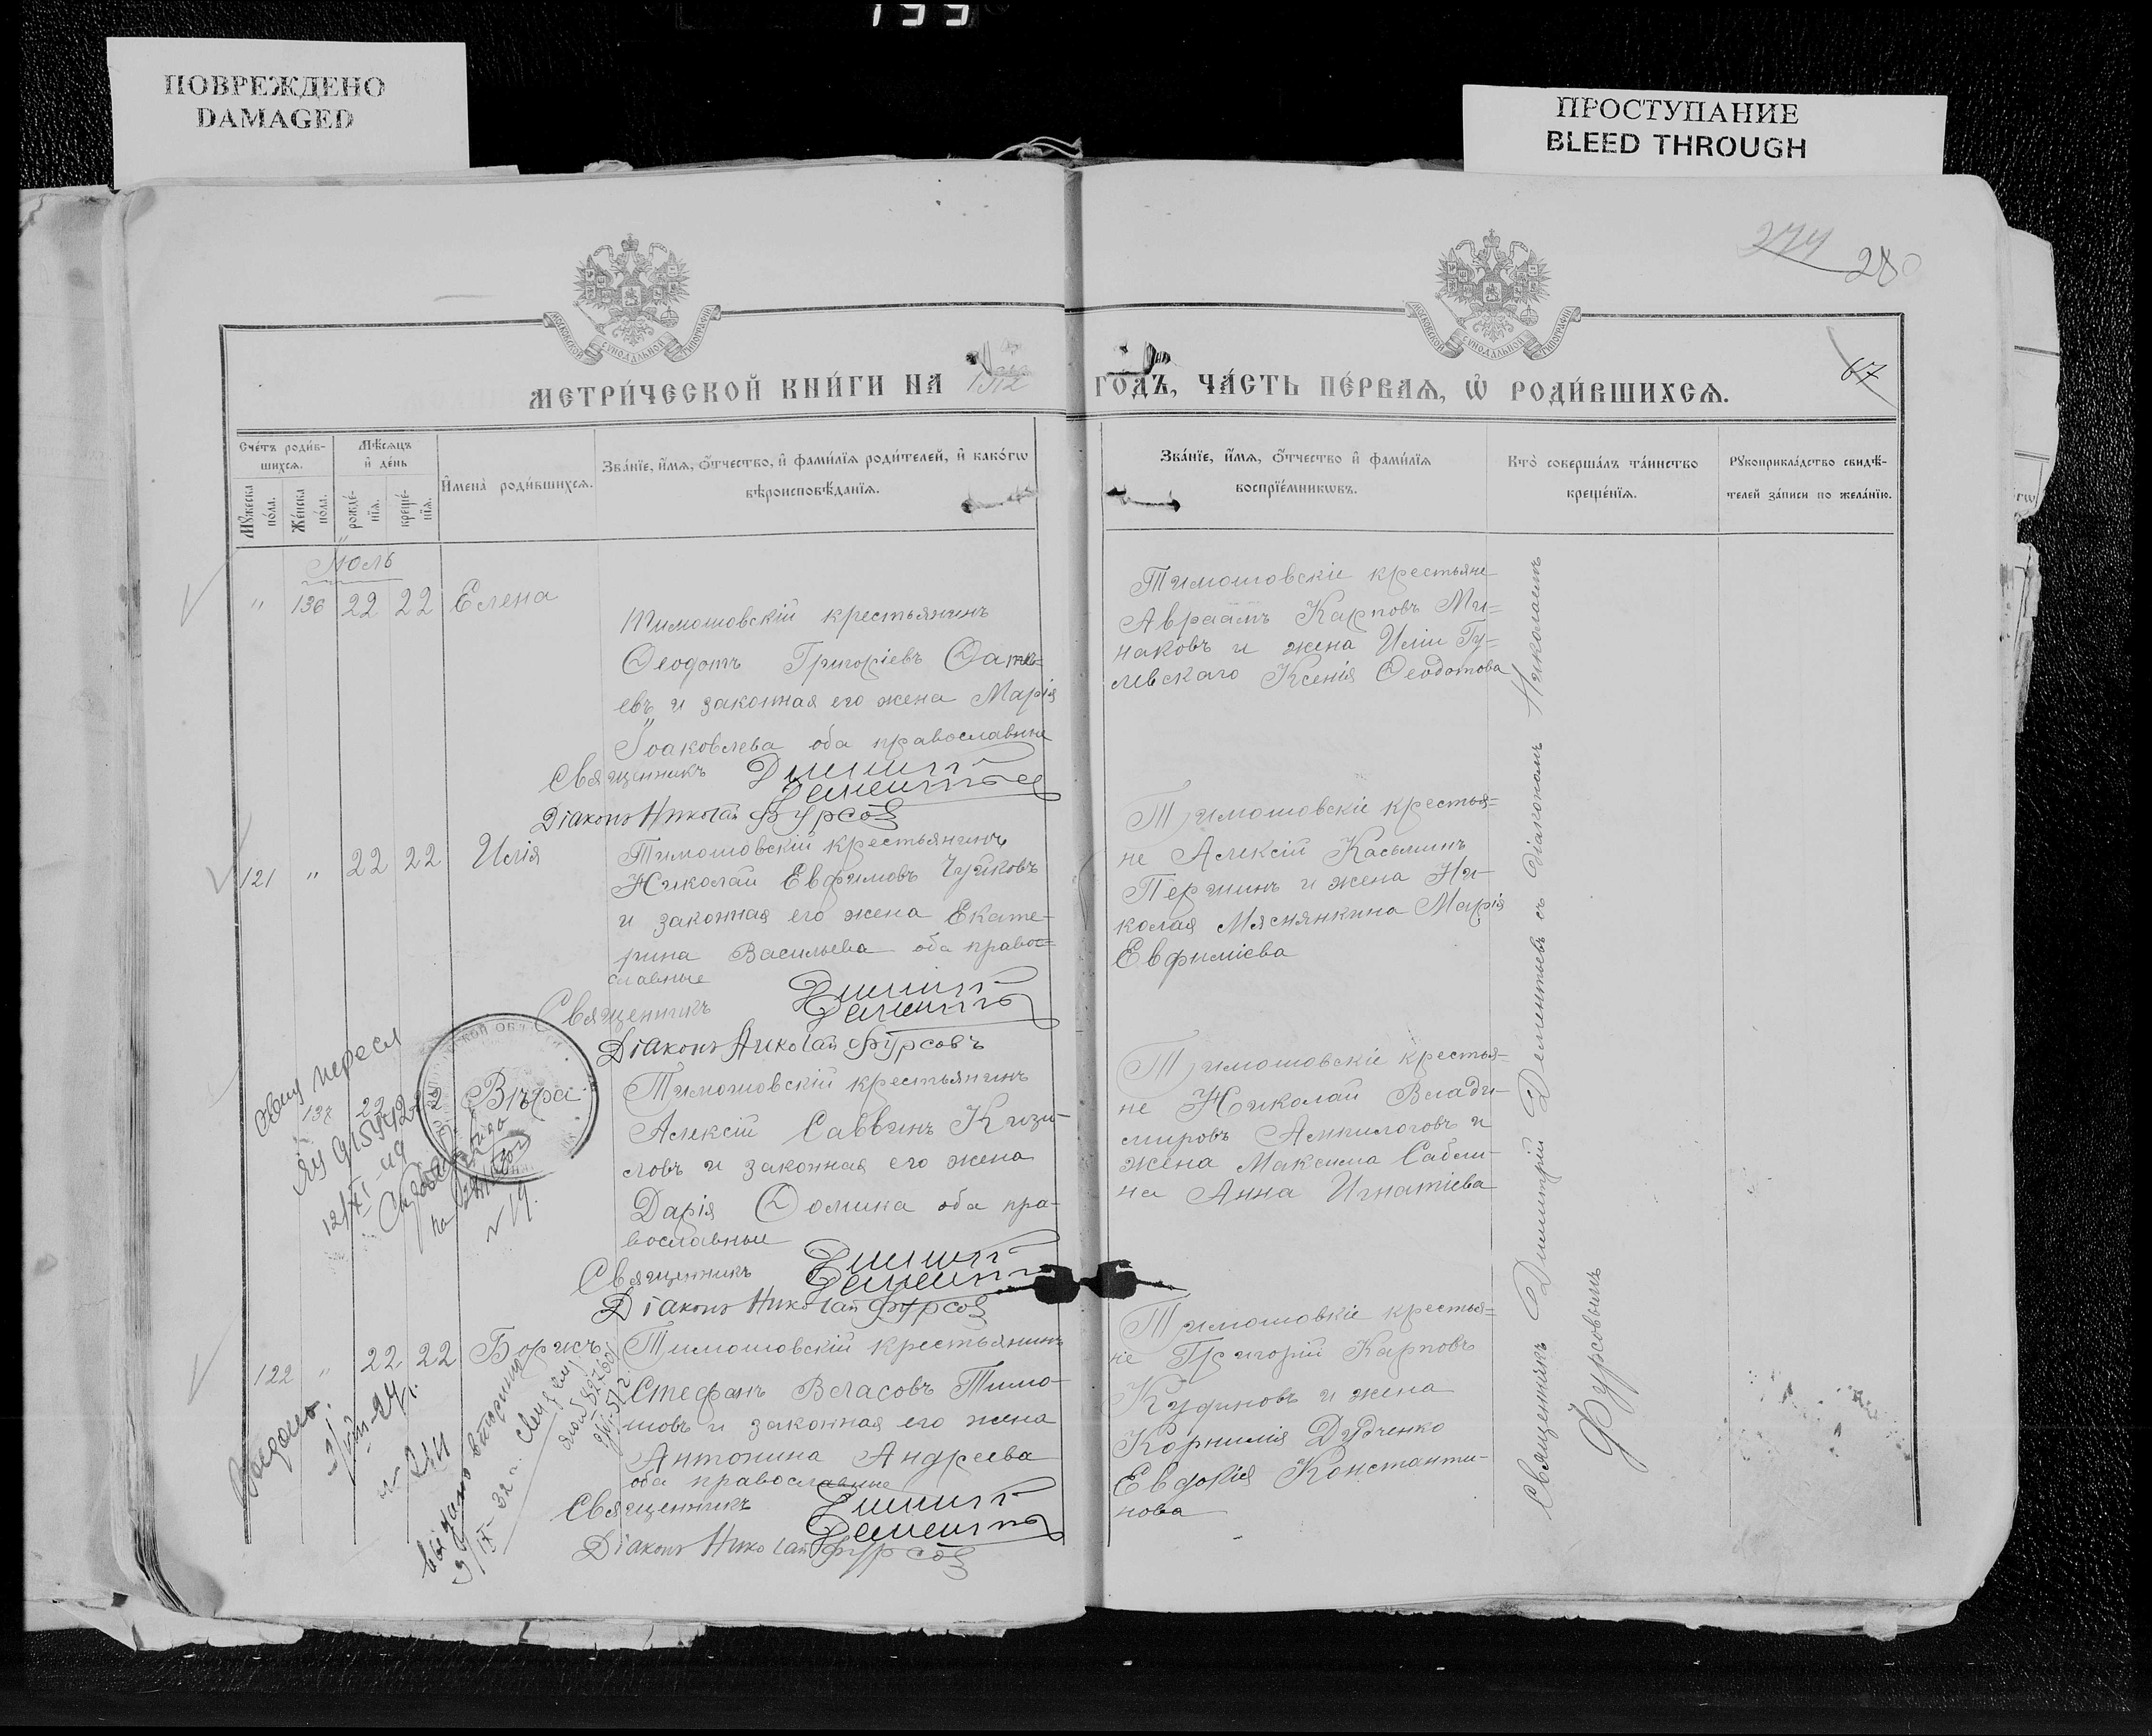 199
ПОВРЕЖДЕНО
DAMAGED
ПРОСТУПАНИЕ
BLEED THROUGH
274
280
67
МОСКОВСКОЙ СѴНОДАЛЬНОЙ ТИПОГРАФІИ
МОСКОВСКОЙ СѴНОДАЛЬНОЙ ТИПОГРАФІИ
МЕТРИ́ЧЕСКОЙ КНИ́ГИ НА 1912 ГОДЪ, ЧА́СТЬ ПЕ́РВАЯ, Ѡ҆ РОДИ́ВШИХСѦ.
Сче́тъ роди́в-
шихсѧ.
Мꙋжеска
по́ла.
Же́нска
по́ла.
Мѣ́сѧцъ
и҆ де́нь
рожде́-
нїѧ.
креще́-
нїѧ.
И҆мена̀ роди́вшихсѧ.
Зва́нїе, и҆́мѧ, ѻ҆́тчество, и҆ фами́лїѧ роди́телей, и҆ како́гѡ
вѣроисповѣ́данїѧ.
Зва́нїе, и҆́мѧ, ѻ҆́тчество и҆ фами́лїѧ
воспрїе́мникѡвъ.
Кто̀ соверша́лъ та́инство
креще́нїѧ.
Рꙋкоприкла́дство свидѣ́-
телей за́писи по жела́нїю.
Іюль
" 136 22 22 Елена
Тимошовскій крестьянинъ
Ѳеодотъ Григоріевъ Ѳатѣ=
евъ и законная его жена Марія
Іоаковлева оба православные
Священникъ Димитрій
Дементьев
Діаконъ Николай Фурсов
Тимошовскіе крестьяне
Авраамъ Карповъ Ми=
наковъ и жена Иліи Гу=
левскаго Ксенія Ѳеодотова
121 " 22 22 Илія
Тимошовскій крестьянинъ
Николай Евфимовъ Чуйковъ
и законная его жена Екате-
рина Васильева оба правос=
славные
Священникъ Димитрій
Дементьев
Діаконъ Николай Фурсовъ
Тимошовскіе крестья=
не Алексій Касьминъ
Першинъ и жена Ни-
колая Мяснянкина Марія
Евфиміева
137 22 22 Вѣра
Тимошовскій крестьянинъ
Алексій Саввинъ Кизи-
ловъ и законная его жена
Дарія Ѳомина оба пра-
вославные
Священникъ Димитрій
Дементьев
Діаконъ Николай Фурсов
Тимошовскіе крестья=
не Николай Влади-
мировъ Ампилоговъ и
жена Максима Сабли-
на Анна Игнатіева
122 " 22 22 Борисъ
Тимошовскій крестьянинъ
Стефанъ Власовъ Тимо-
шовъ и законная его жена
Антонина Андреева
оба православные
Священникъ Димитрій
Дементьев
Діаконъ Николай Фурсов
Тимошовскіе крестья=
не Григорій Карповъ
Кудиновъ и жена
Корнилія Дудченко
Евдокія Константи-
нова
Священникъ Димитрій Дементьевъ съ діакономъ Николаемъ
Фурсовымъ
выдано вторично